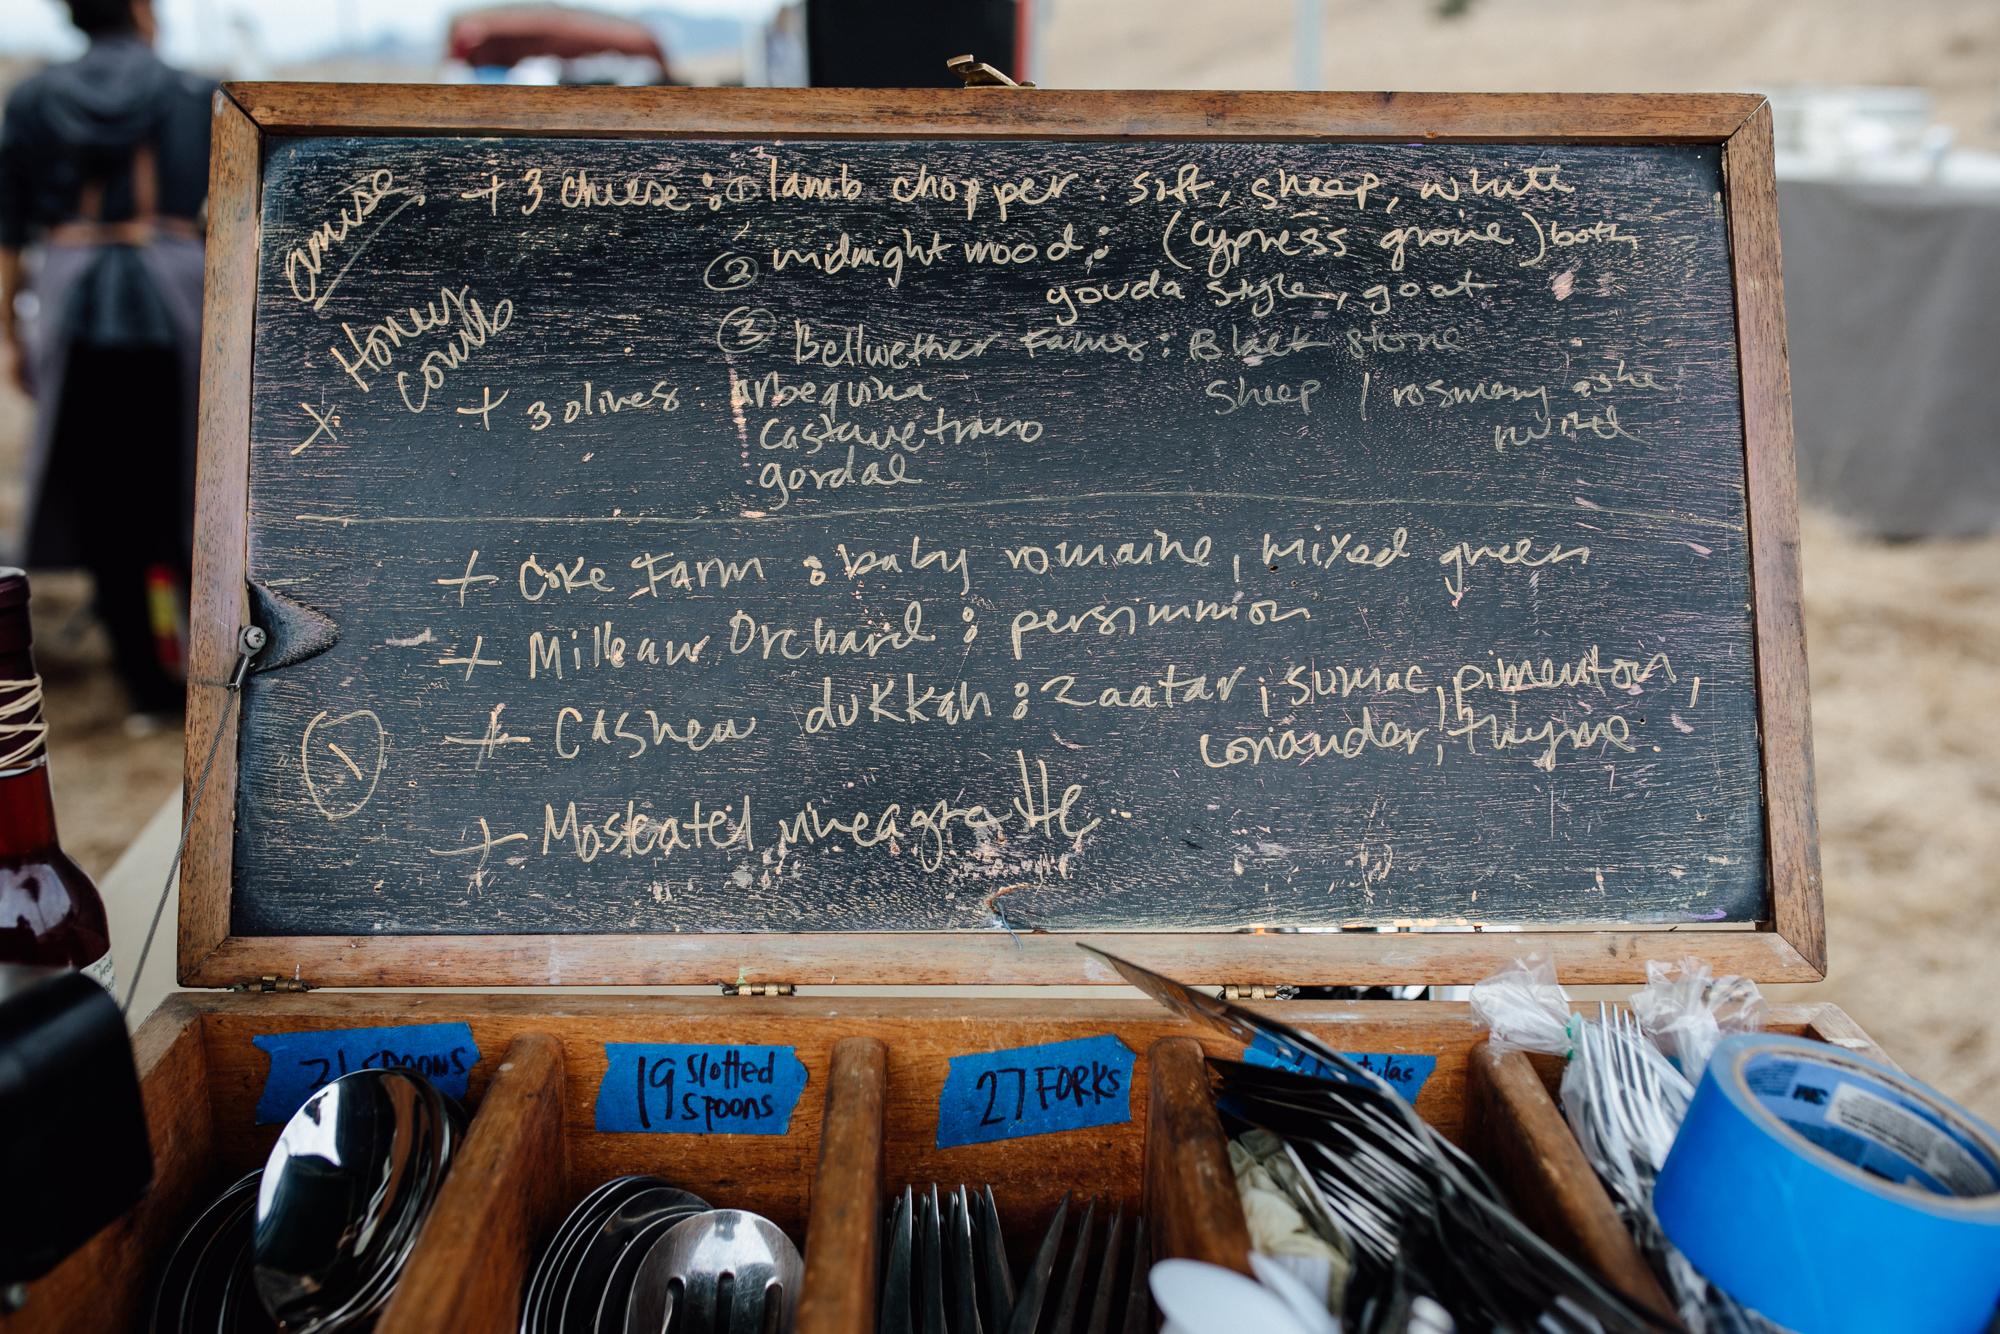 amuse
+ 3 cheese : ① lamb chopper : soft, sheep, white
② midnight mood : (cypress grove) both
gouda style, goat
③ Bellwether Farms : Black stone
Sheep / rosemary ashe
Honey
comb
x
+ 3 olives : arbequina
Castelvetrano
gordal
①
+ Coke Farm : baby romaine, mixed green
+ Milleaur Orchard : persimmion
+ Cashew dukkah : zaatar, sumac, pimenton,
coriander, thyme.
+ Moscatel vineagrette
21 SPOONS
19 Slotted
SPOONS
27 FORKS
3M